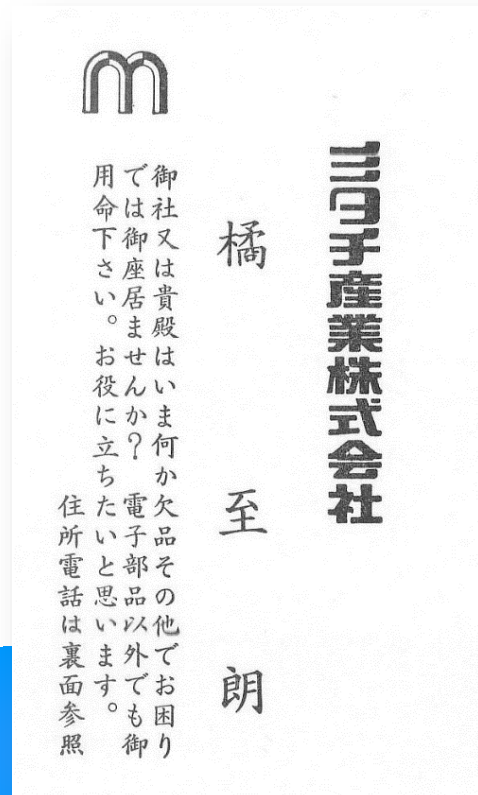 ミタチ産業株式会社
橘至朗
御社又は貴殿はいま何か欠品その他でお困り
では御座居ませんか？電子部品以外でも御
用命下さい。お役に立ちたいと思います。
住所電話は裏面参照
m